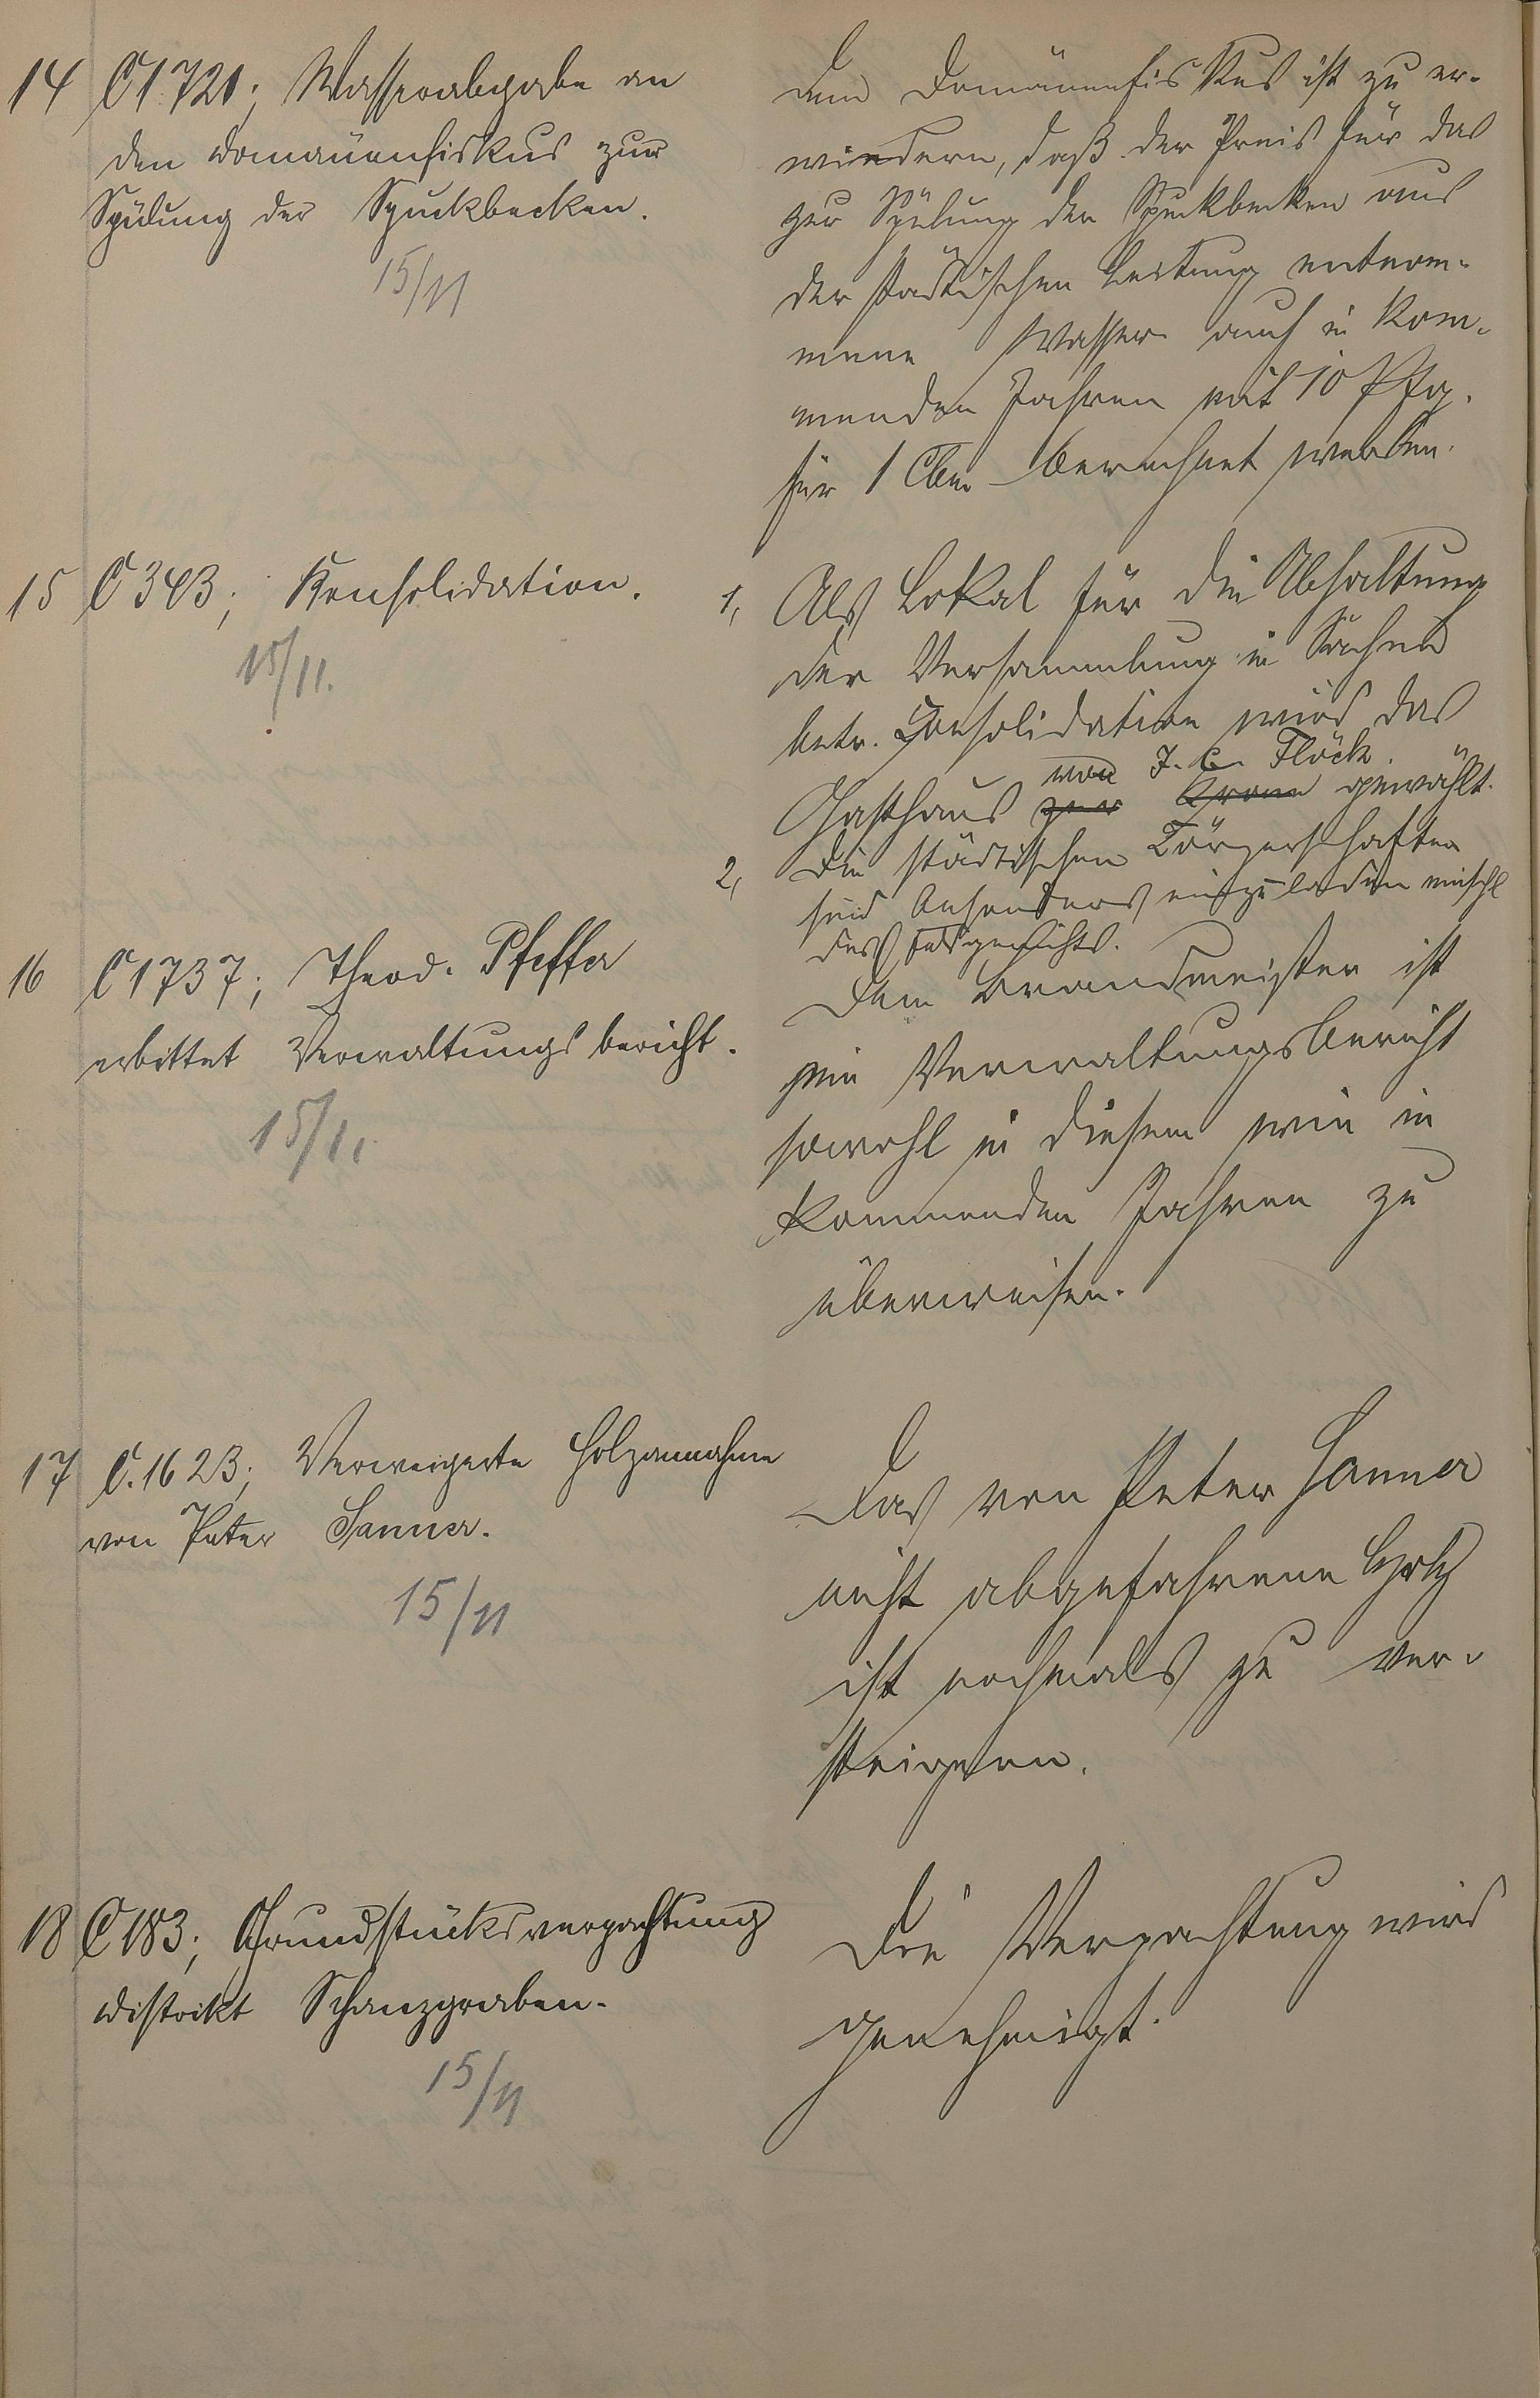 14 C 1721; Wasserabgabe an
den Domänenfiskus zur
Spülung der Spuckbecken.
15/11
Dem Domänenfiskus ist zu er-
widern, daß der Preis für das
zur Spülung der Spuckbecken aus
der städtischen Leitung entnom-
mene Wasser auch in kom-
menden Jahren mit 10 Pfg.
für 1 Cbm berechnet werden.
15 C 343; Konsolidation.
15/11.
1, Als Lokal für die Abhaltung
der Versammlung in Sachen
betr. Consolidation wird das
von J. C. Flöck.
Gasthaus zur Krone gewählt.
2, Die städtischen Körperschaften
sind besonders einzuladen einschl
des Feldgerichts.
16 C 1737; Theod. Pfeffer
erbittet Verwaltungsbericht.
15/11.
Dem Brandmeister ist
ein Verwaltungsbericht
sowohl in diesem wie in
kommenden Jahren zu
überweisen.
17 C. 1623; Verweigerte Holzannahme
von Peter Sanner.
15/11
Das von Peter Sanner
nicht abgefahrene Holz
ist nochmals zu ver-
steigern.
18 C 183; Grundstücksverpachtung
Distrikt Schanzgraben.
15/11
Die Verpachtung wird
genehmigt.